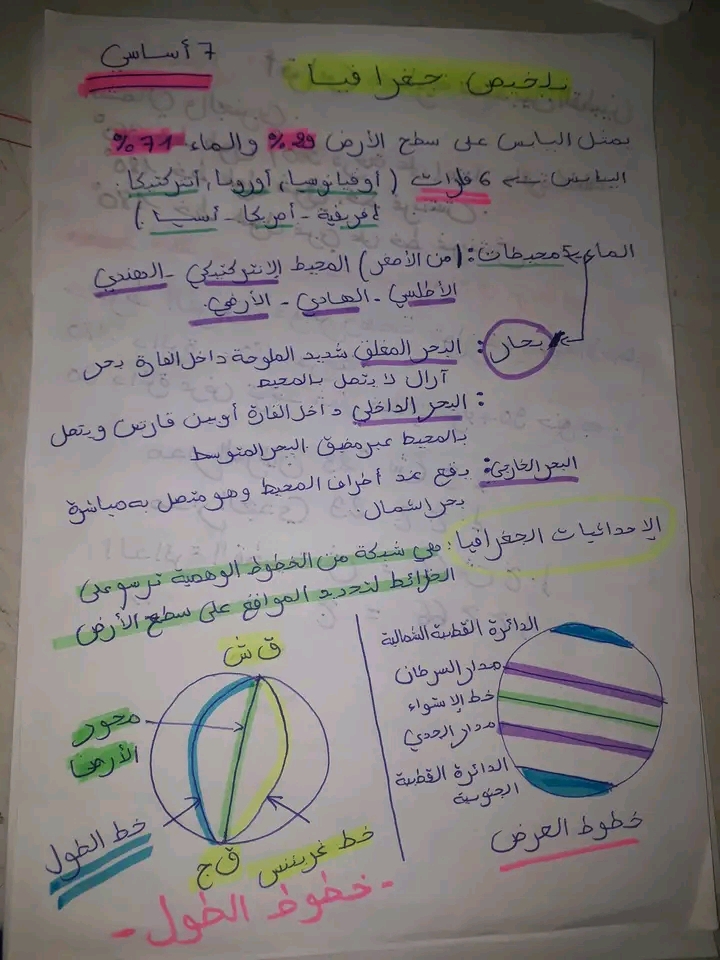 7 أساسي
تلخيص جغرافيا
يمثل اليابس على سطح الأرض 29% والماء 71%
اليابس 6 قارات ( أوقيانوسيا، أوروبا، أنتركتيكا
إفريقية - أمريكا - آسيا )
الماء 5 محيطات : (من الأصغر) المحيط الانتركتيكي - الهندي
الأطلسي - الهادي -
بحار : البحر المغلق شديد الملوحة داخل القارة بحر
آرال لا يتصل بالمحيط
: البحر الداخلي داخل القارة أو بين قارتين ويتصل
بالمحيط عبر مضيق . البحر المتوسط
البحر الخارجي : يقع عند أطراف المحيط وهو متصل به مباشرة
بحر الشمال .
الإحداثيات الجغرافيا : هي شبكة من الخطوط الوهمية ترسم على
الخرائط لتحديد المواقع على سطح الأرض
الدائرة القطبية الشمالية
مدار السرطان
خط الاستواء
مدار الجدي
الدائرة القطبية
الجنوبية
خطوط العرض
ق ش
محور
الأرض
خط الطول
ق ج
خط غرينتش
- خطوط الطول -